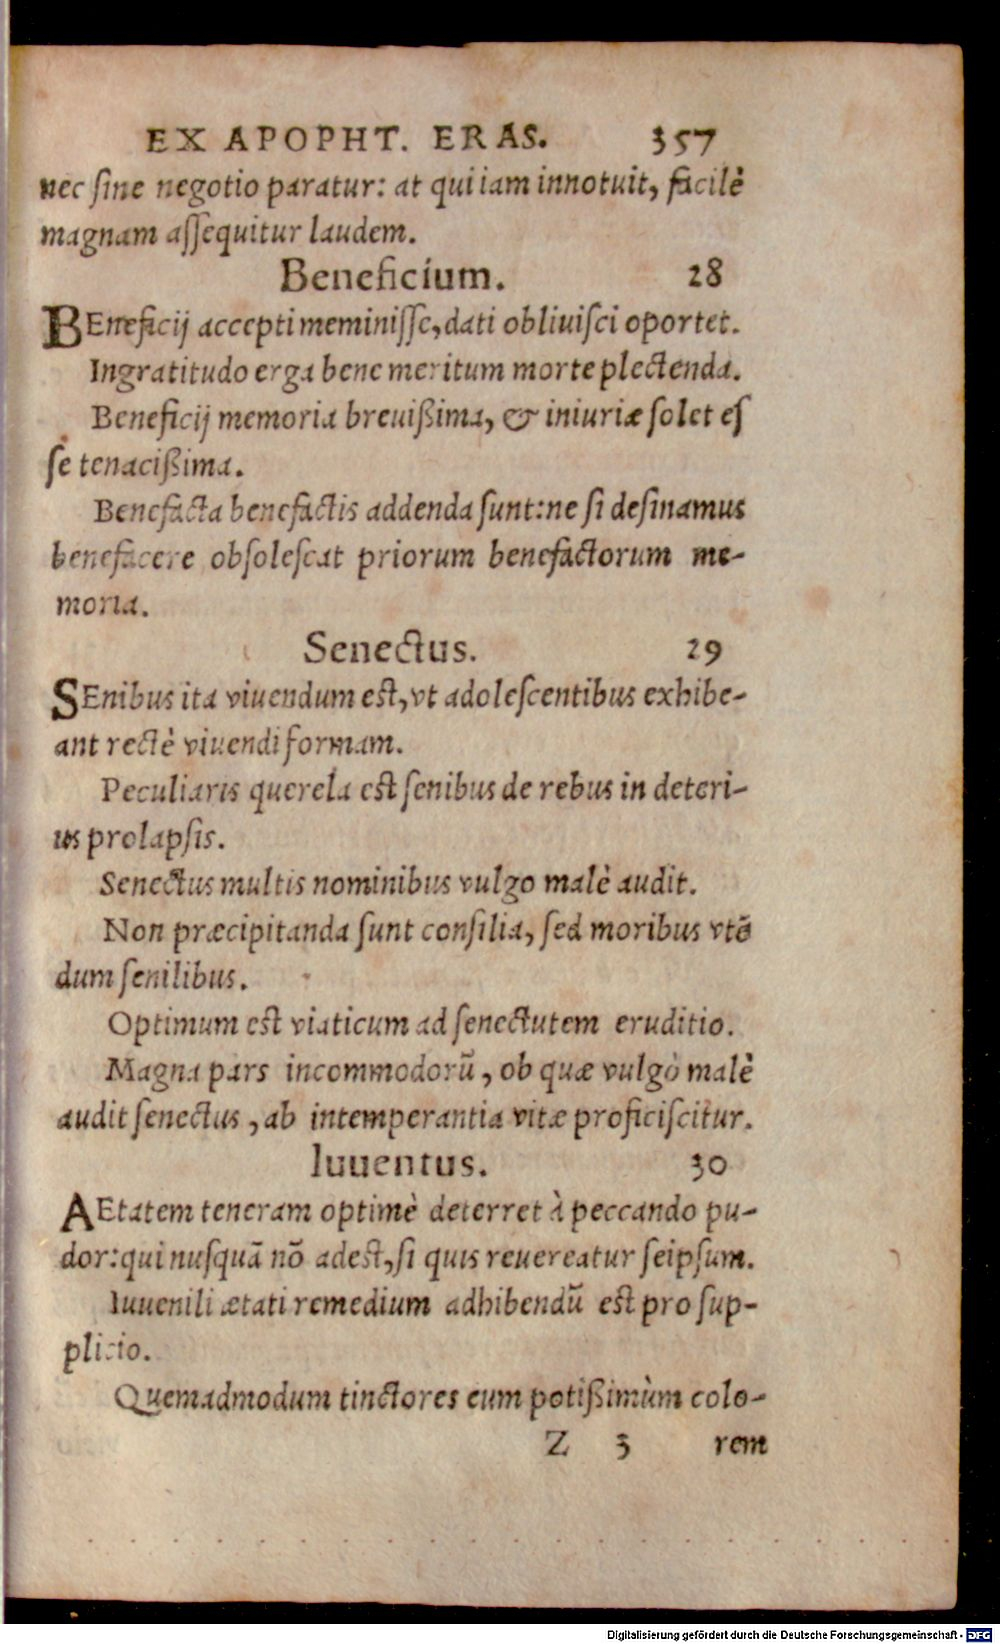 EX APOPHT. ERAS. 357
nec ſine negotio paratur: at qui iam innotuit, facilè
magnam aſſequitur laudem.
Beneficium. 28
BEneficij accepti meminiſſe, dati obliuiſci oportet.
Ingratitudo erga bene meritum morte plectenda.
Beneficij memoria breuißima, & iniuriæ ſolet eſ
ſe tenacißima.
Benefacta benefactis addenda ſunt: ne ſi deſinamus
benefacere obſoleſcat priorum benefactorum me-
moria.
Senectus. 29
SEnibus ita viuendum eſt, vt adoleſcentibus exhibe-
ant rectè viuendi formam.
Peculiaris querela eſt ſenibus de rebus in deteri-
us prolapſis.
Senectus multis nominibus vulgo malè audit.
Non præcipitanda ſunt conſilia, ſed moribus vtẽ
dum ſenilibus.
Optimum eſt viaticum ad ſenectutem eruditio.
Magna pars incommodorũ, ob quæ vulgò malè
audit ſenectus, ab intemperantia vitæ proficiſcitur.
Iuuentus. 30
AEtatem teneram optimè deterret à peccando pu-
dor: qui nuſquã nõ adeſt, ſi quis reuereatur ſeipſum.
Iuuenili ætati remedium adhibendũ eſt pro ſup-
plicio.
Quemadmodum tinctores eum potißimùm colo-
Z 3 rem
Digitalisierung gefördert durch die Deutsche Forschungsgemeinschaft - DFG